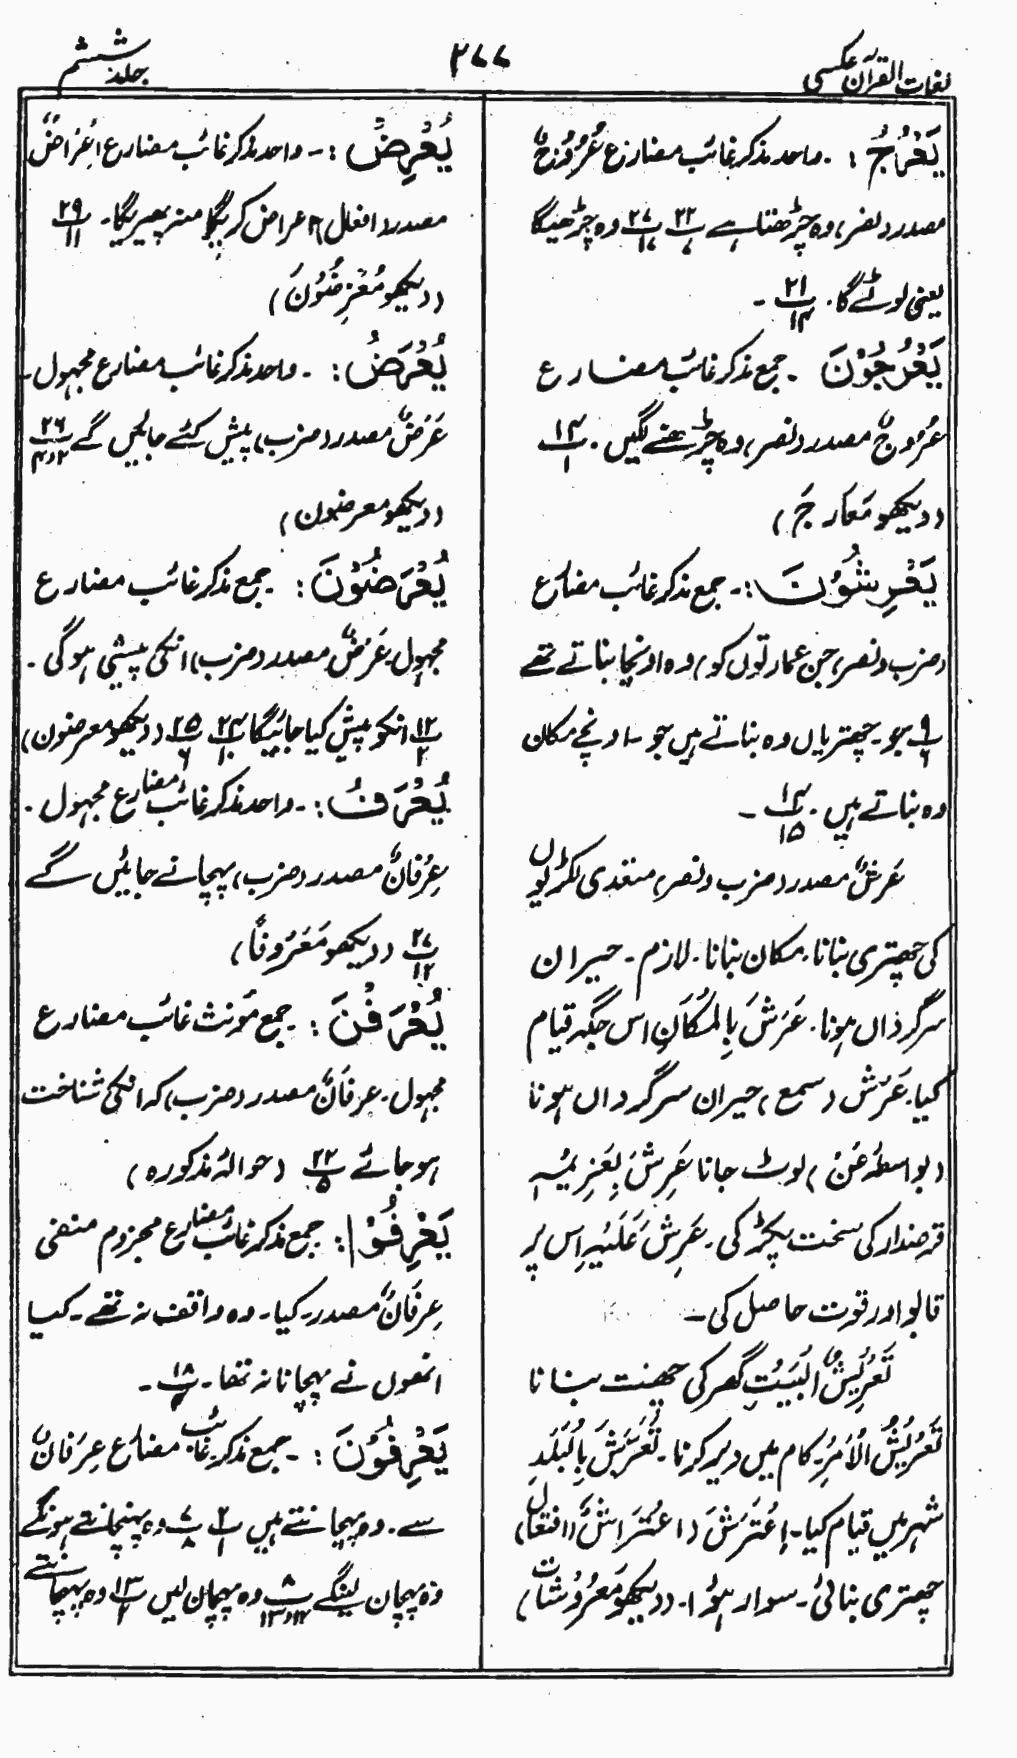 لغات القرآن عکسی
۲۷۷
جلد ششم
يَعْرُجُ: ۔ واحد مذکر غائب مضارع عُرُوْجٌ
مصدر (نصر) وہ چڑھتا ہے ۲۲/۷ ۲۷/۱۷ وہ چڑھیگا
یعنی لوٹے گا۔ ۲۱/۱۴ ۔
يَعْرُجُوْنَ ۔ جمع مذکر غائب مضارع
عُرُوجٌ مصدر (نصر) وہ چڑھنے لگیں۔ ۱۴/۱
(دیکھو مَعَارِجَ)
يَعْرِشُوْنَ:۔ جمع مذکر غائب مضارع
(ضرب و نصر) جن عمارتوں کو) وہ اونچا بناتے تھے
۹/۶ جو۔ چھتریاں وہ بناتے ہیں جو ۔ اونچے مکان
وہ بناتے ہیں ۔ ۱۴/۱۵ ۔
عَرْشٌ مصدر (ضرب و نصر) متعدی لکڑیوں
کی چھتری بنانا۔ مکان بنانا۔ لازم۔ حیران
سرگرداں ہونا۔ عَرَشَ بِالْمَكَانِ اس جگہ قیام
کیا۔ عَرَش (سمع) حیران سرگرداں ہونا
(بواسطۂ عَنْ) لوٹ جانا عَرِشَ بِغَرِيْمِہٖ
قرضدار کی سخت پکڑ کی۔ عَرِشَ عَلَيْہِ اس پر
قابو اور قوت حاصل کی۔
تَعْرِيْشُ الْبَيْتِ گھر کی چھت بنانا
تَعْرِيْشُ الْاَمْرِ کام میں دیر کرنا۔ تَعَرَّشَ بِالْبَلَدِ
شہر میں قیام کیا۔ اِعْتَرَشَ (اعْتِرَاشٌ) (افتعال)
چھتری بنائی۔ سوار ہوا۔ (دیکھو مَعْرُوْشَات)
يُعْرِضُ:۔ واحد مذکر غائب مضارع اِعْرَاضٌ
مصدر (افعال) اعراض کریگا منہ پھیریگا۔ ۲۹/۱۱
(دیکھو مُعْرِضُوْنَ)
يُعْرَضُ: ۔ واحد مذکر غائب مضارع مجہول۔
عَرْضٌ مصدر (ضرب) پیش کئے جائیں گے ۲۶/۲،۴
(دیکھو معرضون)
يُعْرَضُوْنَ: جمع مذکر غائب مضارع
مجہول۔ عَرْضٌ مصدر (ضرب) انکی پیشی ہوگی۔
۱۲/۲ انکو پیش کیا جائیگا ۲۴/۱۰ ۲۵/۶ (دیکھو معرضون)
يُعْرَفُ:۔ واحد مذکر غائب مضارع مجہول۔
عِرْفَانٌ مصدر (ضرب) پہچانے جائیں گے
۲۷/۱۲ (دیکھو مَعْرُوفًا)
يُعْرَفْنَ: جمع مونث غائب مضارع
مجہول۔ عِرفَانٌ مصدر (ضرب) کہ انکی شناخت
ہو جائے ۲۲/۵ (حوالۂ مذکورہ)
يَعْرِفُوْا: جمع مذکر غائب مضارع مجزوم منفی
عِرفَانٌ مصدر۔ کیا۔ وہ واقف نہ تھے۔ کیا
انھوں نے پہچانا نہ تھا۔ ۱۸/۴ ۔
يَعْرِفُوْنَ: ۔ جمع مذکر غائب مضارع عِرفَانٌ
سے۔ وہ پہچانتے ہیں ۲/۱ ۷/۸ وہ پہچانتے ہونگے
وہ پہچان لینگے ۸/۱۲،۱۳ وہ پہچان لیں ۱۳/۲ وہ پہچانتے